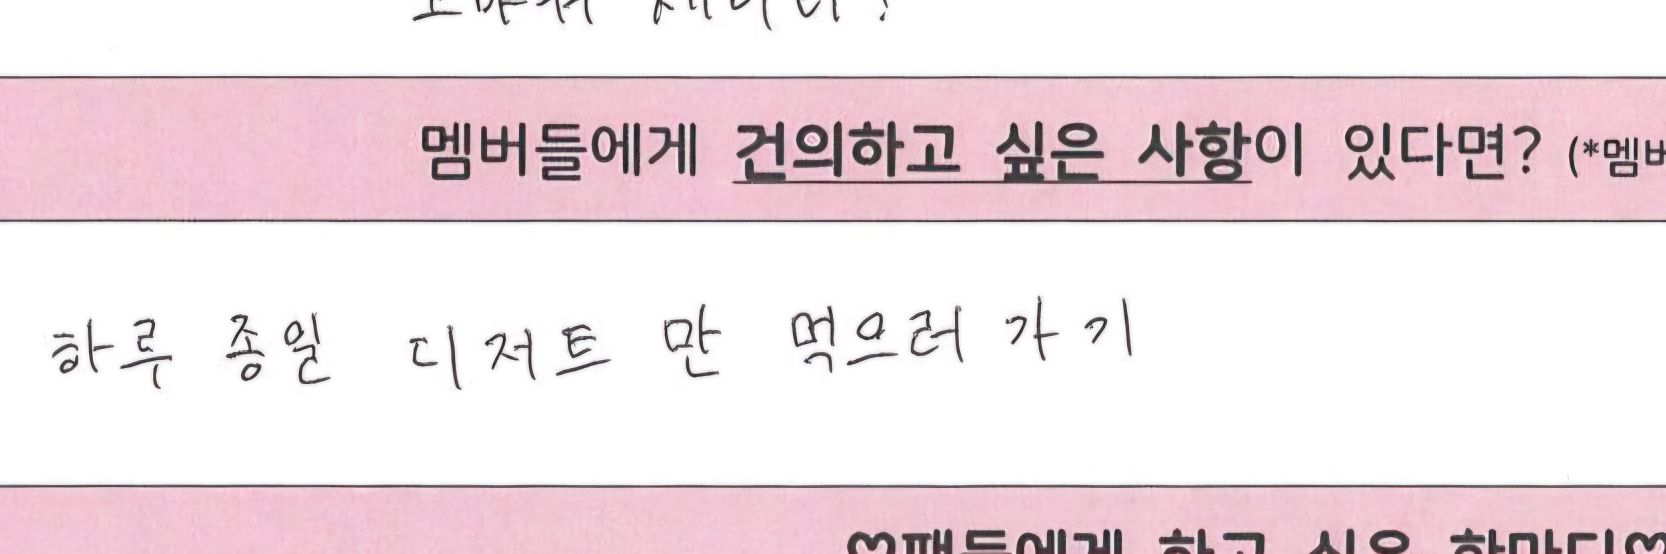 멤버들에게 건의하고 싶은 사항이 있다면? (*멤버
하루 종일 디저트 만 먹으러 가기
♡팬들에게 하고 싶은 한마디♡